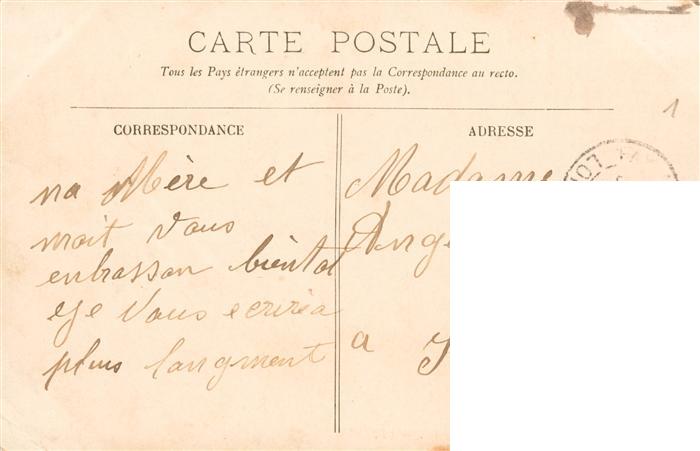 CARTE POSTALE
Tous les Pays étrangers n'acceptent pas la Correspondance au recto.
(Se renseigner à la Poste).
CORRESPONDANCE
ma Mère et
moit Vous
enbrasson bientot
eje Vous ecrirea
plus langment
ADRESSE
Madame
a
1